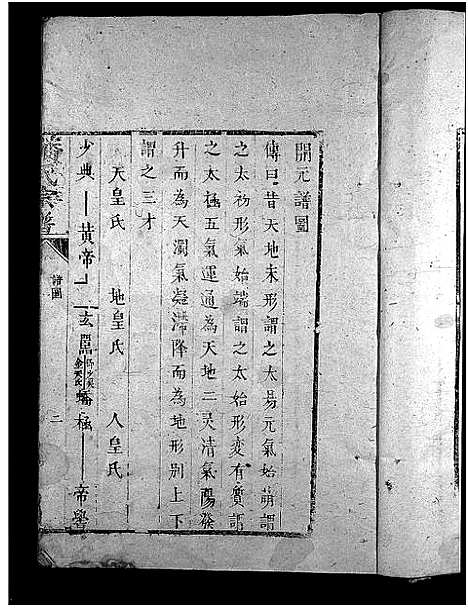 開元譜圖
傳曰昔天地未形謂之太易元氣始萌謂
之太初形氣始端謂之太始形變有質謂
之太極五氣運通為天地三灵清氣陽發
升而為天濁氣凝滯降而為地形別上下
謂之三才
天皇氏 地皇氏 人皇氏
少典 黄帝 玄囂 即少昊金天氏 蟜極 帝嚳
氏宗譜
譜圖
二